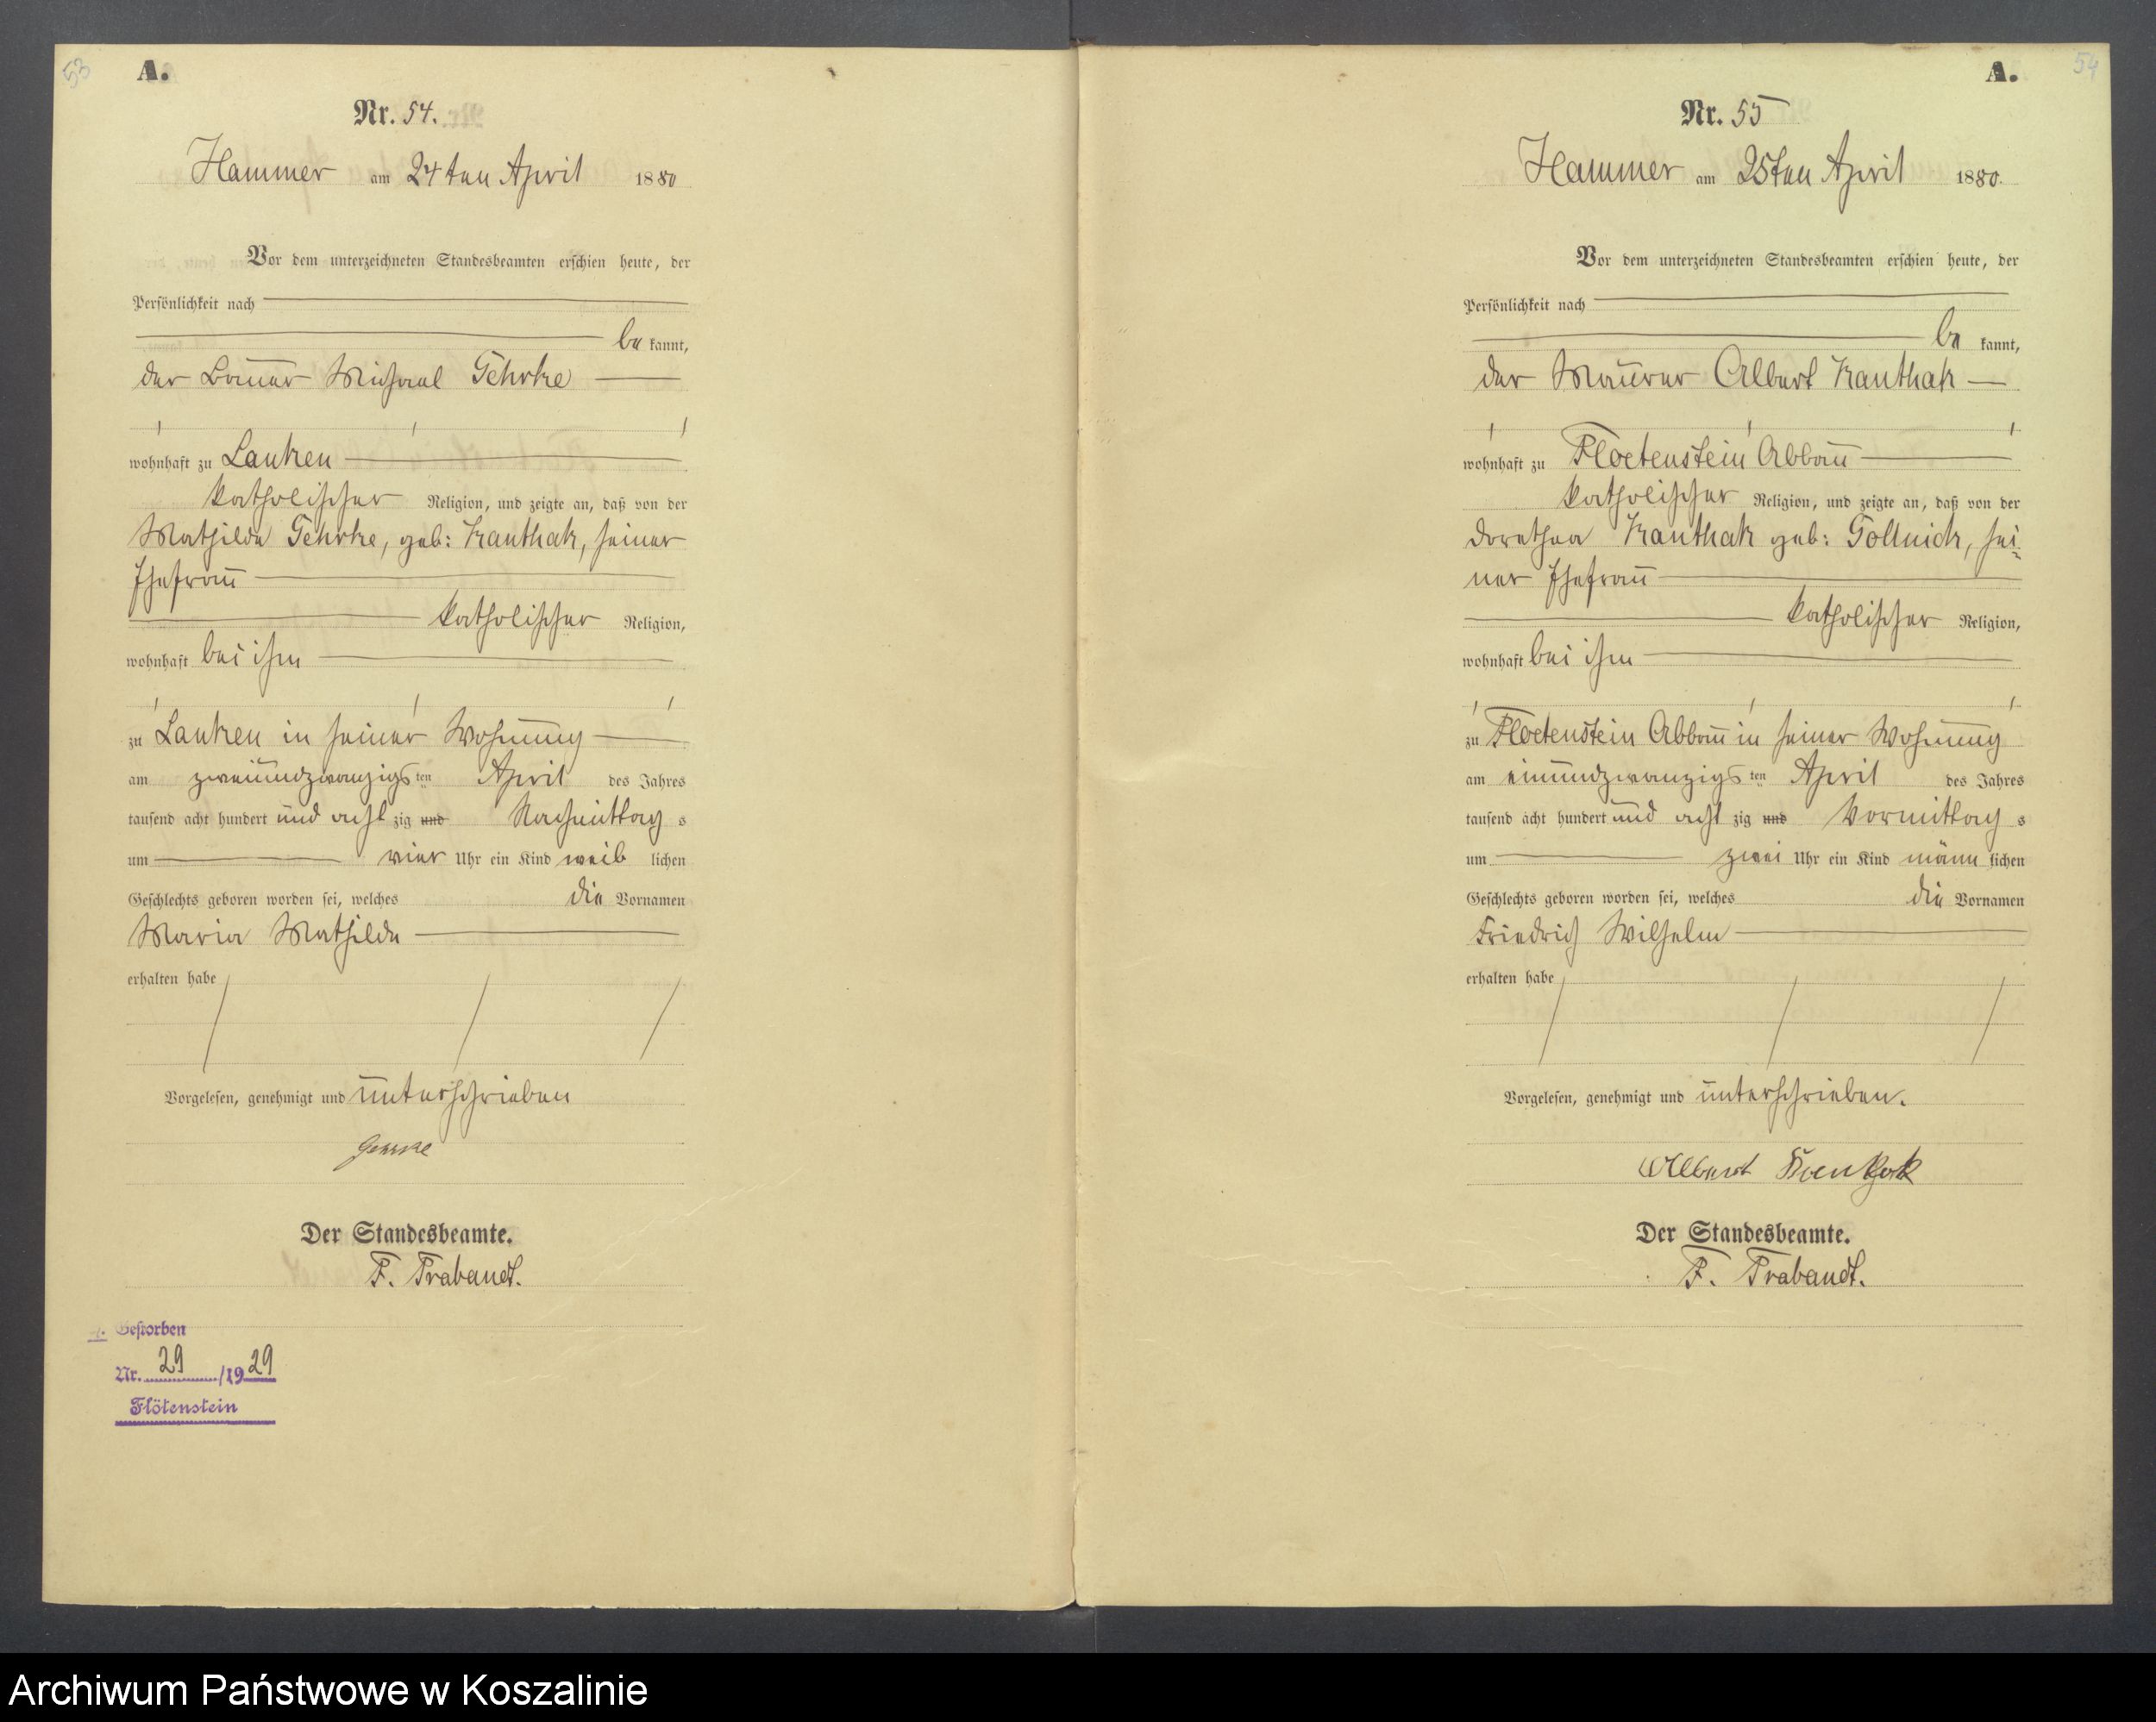 53
A.
Nr. 54.
Hammer am 24ten April 1880
Vor dem unterzeichneten Standesbeamten erschien heute, der
Persönlichkeit nach
be kannt,
der Bauer Michael Gehrke
wohnhaft zu Lanken
katholischer Religion, und zeigte an, daß von der
Mathilde Gehrke, geb: Kanthak, seiner
Ehefrau
katholischer Religion,
wohnhaft bei ihm
zu Lanken in seiner Wohnung
am zweiundzwanzigs ten April des Jahres
tausend acht hundert und acht zig und Nachmittag s
um vier Uhr ein Kind weib lichen
Geschlechts geboren worden sei, welches die Vornamen
Maria Mathilde
erhalten habe
Vorgelesen, genehmigt und unterschrieben
Gehrke
Der Standesbeamte.
F. Trabandt.
Gestorben
Nr. 29 /1929
Flötenstein
54
A.
Nr. 55
Hammer am 25ten April 1880.
Vor dem unterzeichneten Standesbeamten erschien heute, der
Persönlichkeit nach
be kannt,
der Maurer Albert Kanthak
wohnhaft zu Floetenstein Abbau
katholischer Religion, und zeigte an, daß von der
Dorothea Kanthak geb: Gollnick, sei=
ner Ehefrau
katholischer Religion,
wohnhaft bei ihm
zu Floetenstein Abbau in seiner Wohnung
am einundzwanzigs ten April des Jahres
tausend acht hundert und acht zig und Vormittag s
um zwei Uhr ein Kind männ lichen
Geschlechts geboren worden sei, welches die Vornamen
Friedrich Wilhelm
erhalten habe
Vorgelesen, genehmigt und unterschrieben.
Albert Kanthak
Der Standesbeamte.
F. Trabandt.
Archiwum Państwowe w Koszalinie